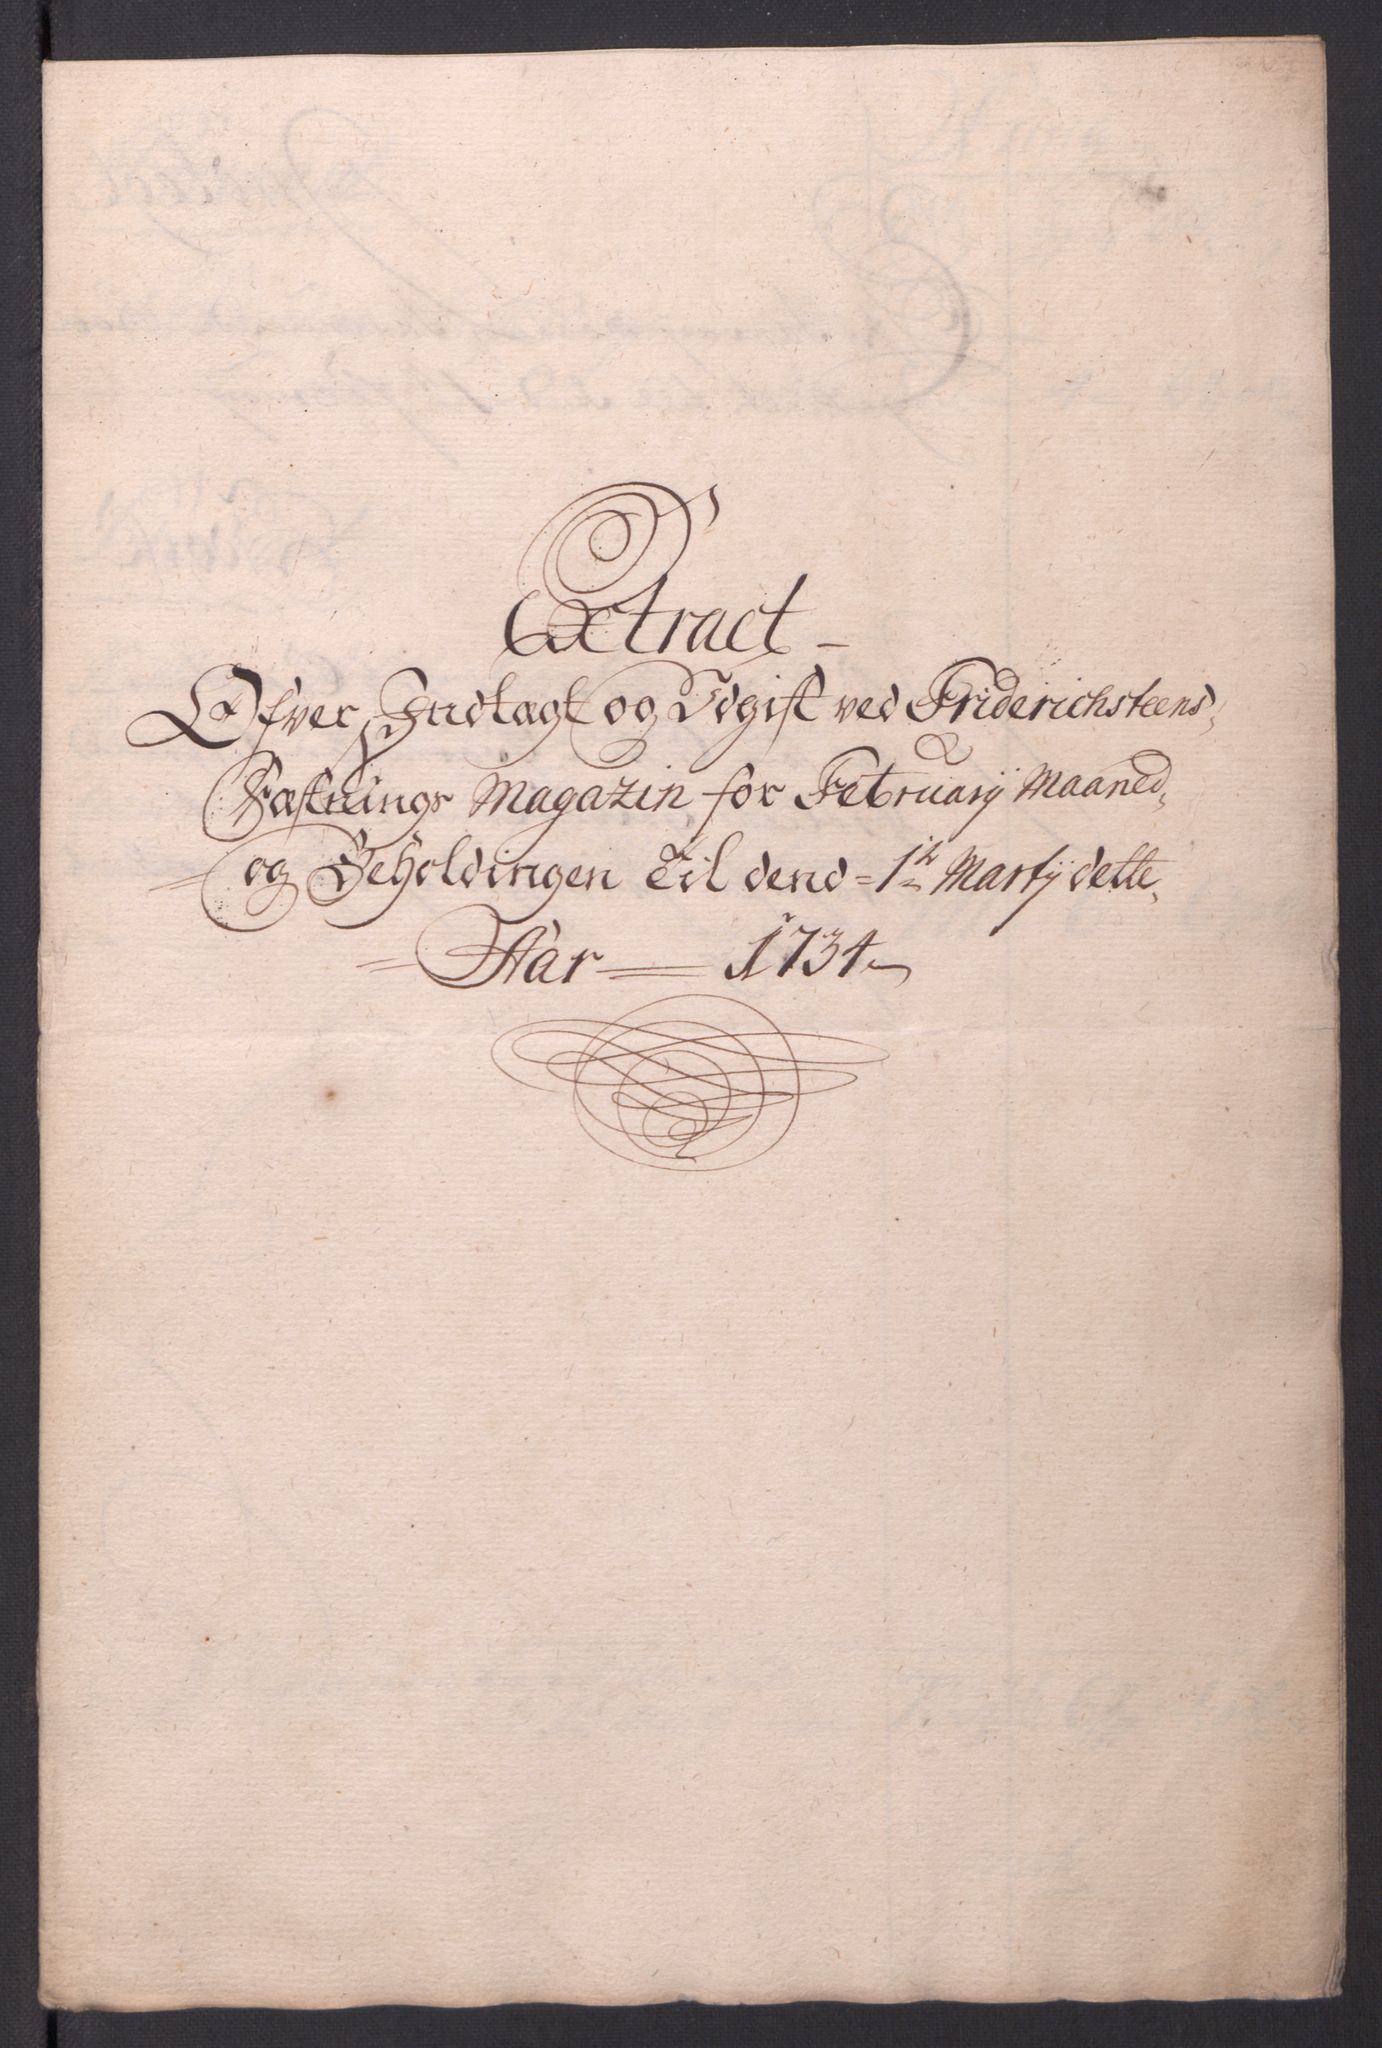 Extract
Ofver Indtægt og Udgift ved Friderichsteens
Fæstnings Magazin for Februarÿ Maaned,
og Beholdingen Til dend 1te Martÿ dette
Aar 1734